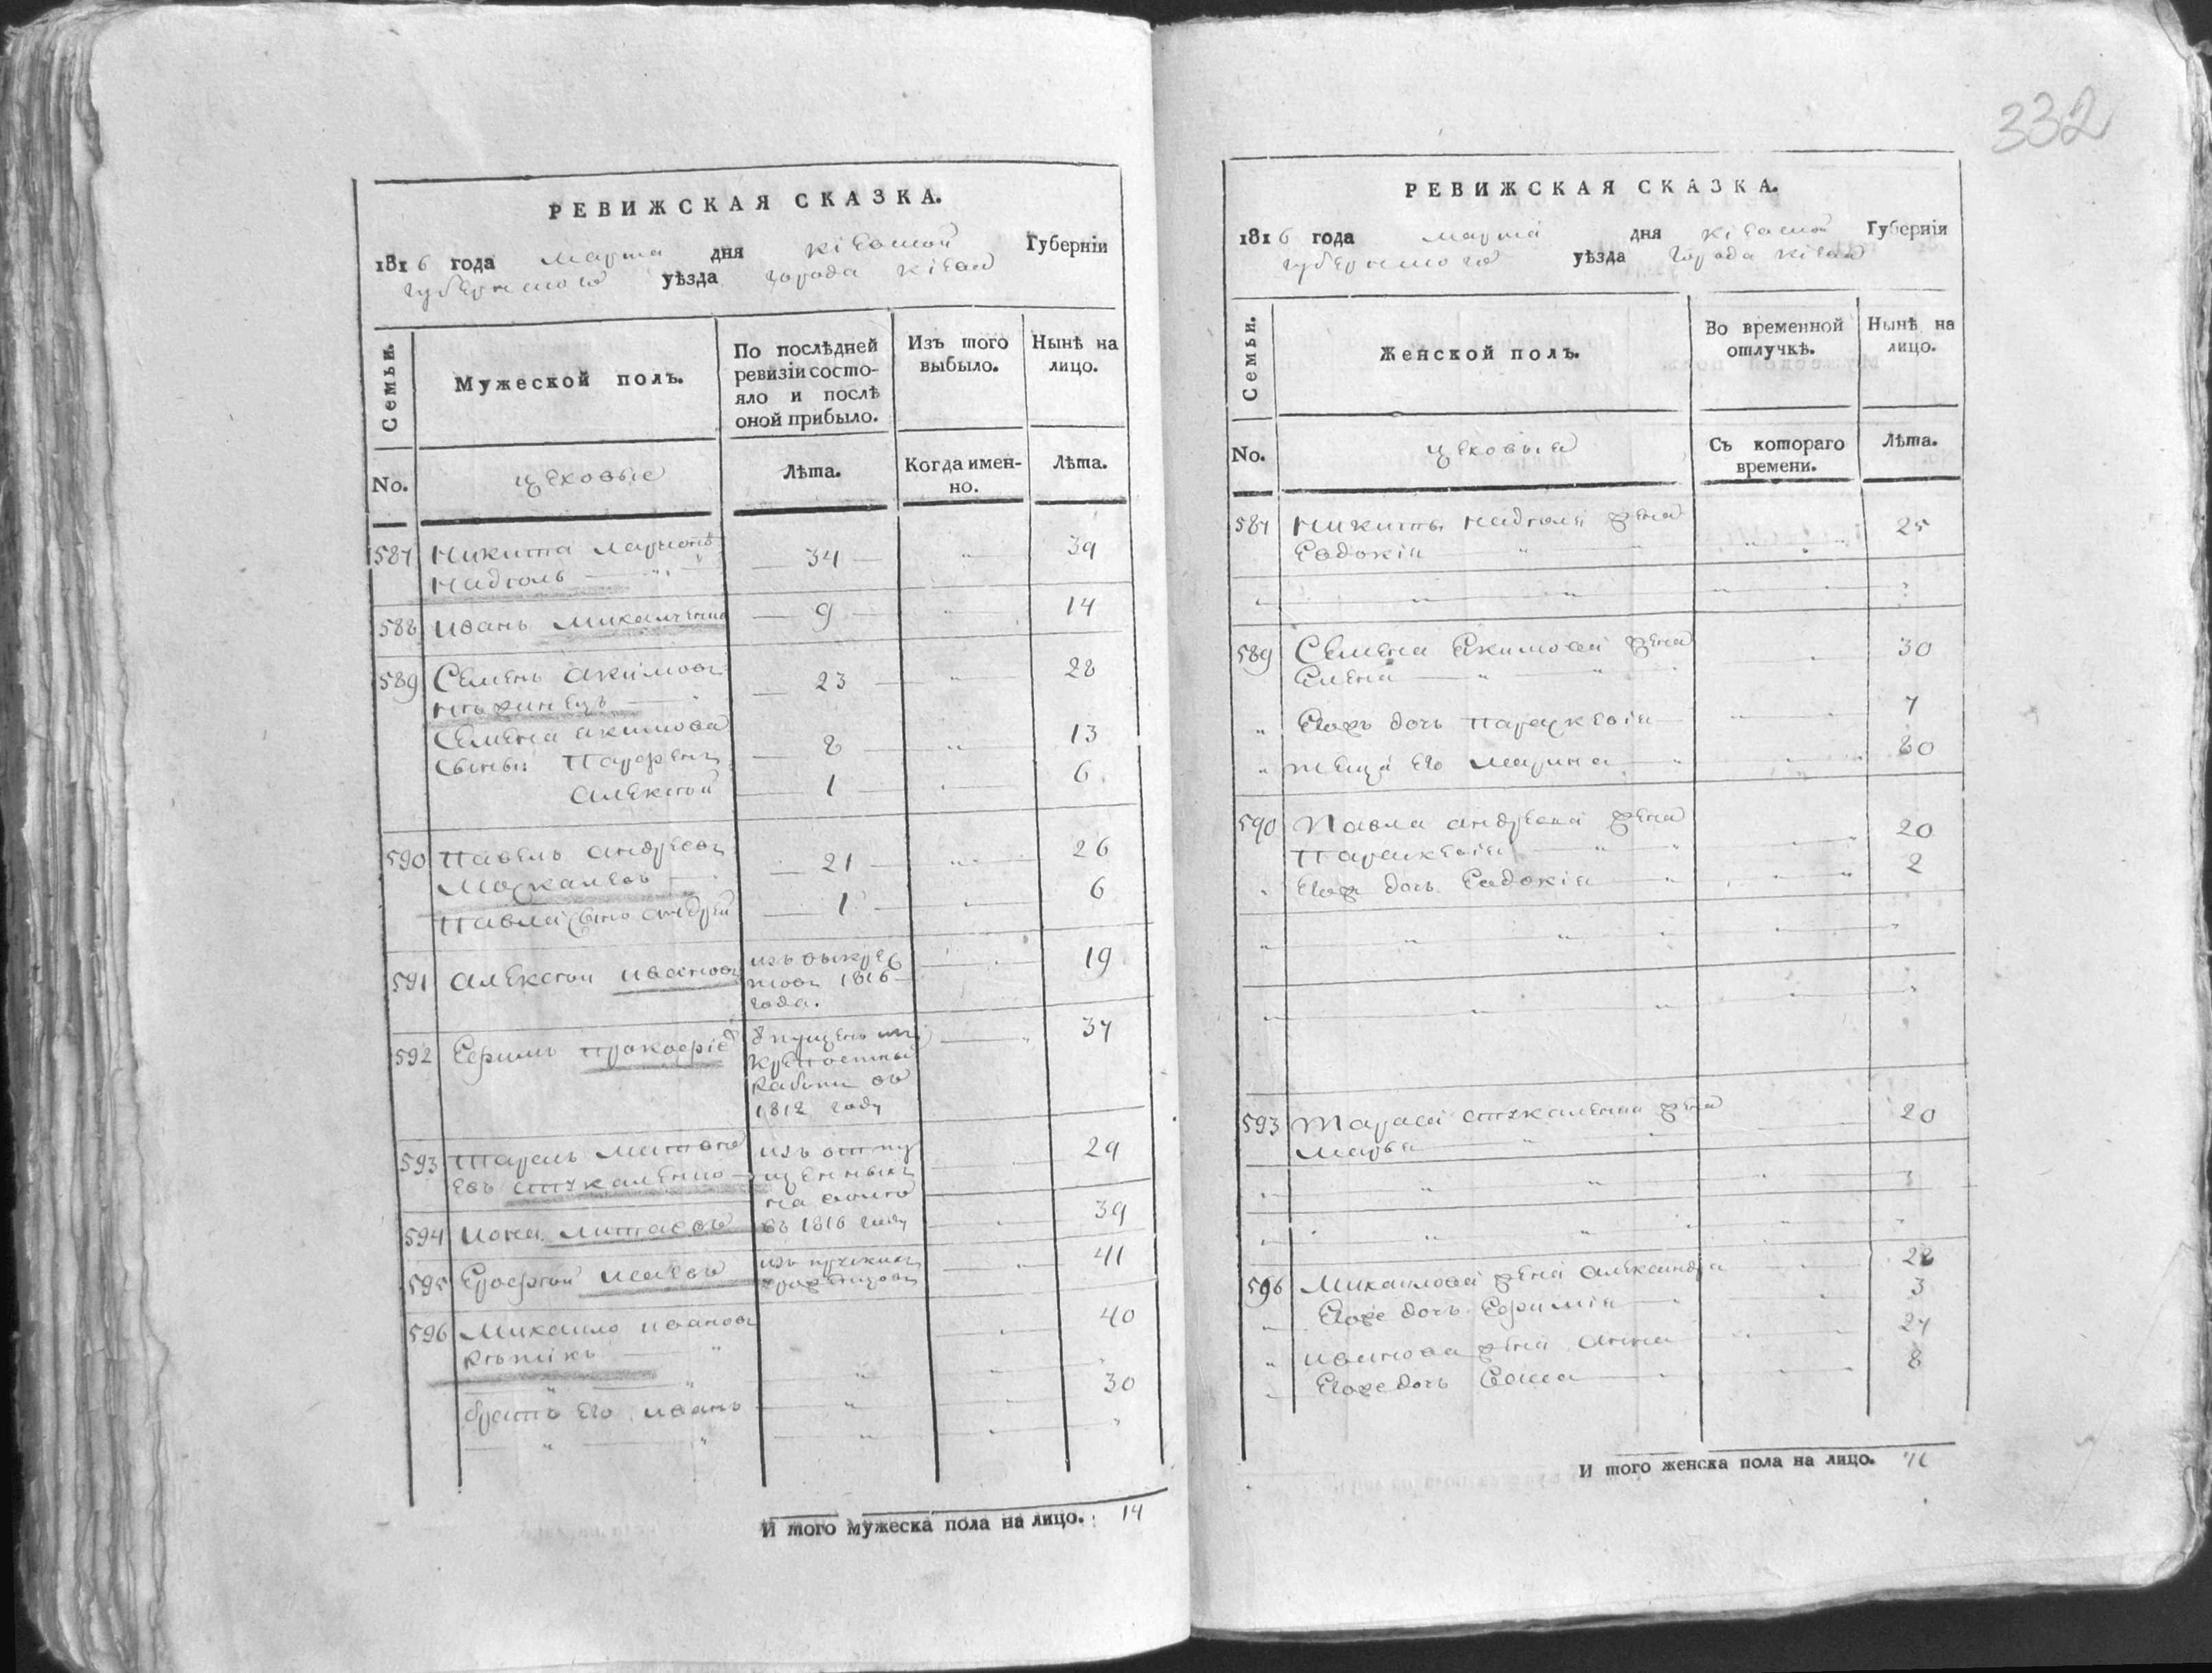 РЕВИЖСКАЯ СКАЗКА.
1816 года марта дня кіевской Губерніи
губернского уѣзда города кіева
Семьи.
Мужеской полъ.
По послѣдней ревизіи состояло и послѣ оной прибыло.
Изъ того выбыло.
Нынѣ на лицо.
No.
цеховые
Лѣта.
Когда именно.
Лѣта.
587 Никита Ларионовъ
34 39
588 Иванъ Михалченко 9 14
589 Семенъ Акимовъ
нѣжинецъ 23 28
Семена Екимова
сыны Парфенъ 8 13
Алексѣй 1 6
590 Павелъ Андреевъ
Москалевъ 21 26
Павла сынъ Андрей 1 6
591 Алексѣй Ивановъ
1816
года.
19
592 Ефимъ Прокофіе
въ
1812 году
37
593 Тарасъ
изъ отпу
щенныхъ
на волю
29
594 Иона въ 1816 году 39
595 Ерофѣй Исаевъ 41
596 Михайло Ивановъ 40
братъ его Иванъ 30
И того мужеска пола на лицо. 14
332
РЕВИЖСКАЯ СКАЗКА.
1816 года марта дня кіевской Губерніи
губернского уѣзда города кіева
Семьи.
Женской полъ.
Во временной отлучкѣ.
Нынѣ на лицо.
No.
цеховые
Съ котораго времени.
Лѣта.
587 Никиты жена
Евдокія 25
589 Семена Екимова жена
Елена 30
Егожъ дочь Параскевія 7
теща его Марина 60
590 Павла Андреева жена
Параскевія 20
Егожъ дочь Евдокія 2
593 Тараса жена
Марья 20
596 Михайлова жена Александра 28
Егоже дочь Ефимія 3
Иванова жена Анна 27
Егоже дочь 8
И того женска пола на лицо. 11